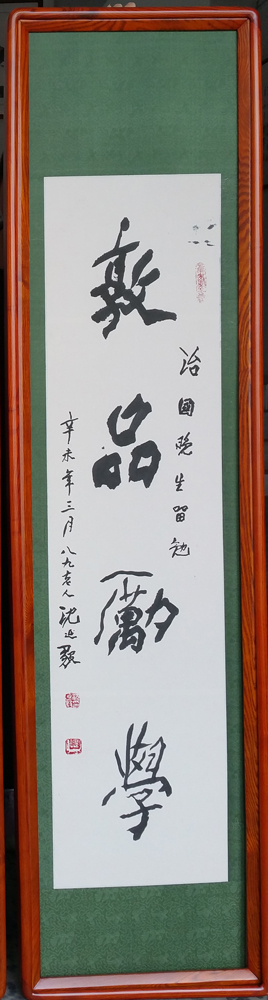 敦品勵學
治國晚生留勉
辛未年三月八九老人沈延毅